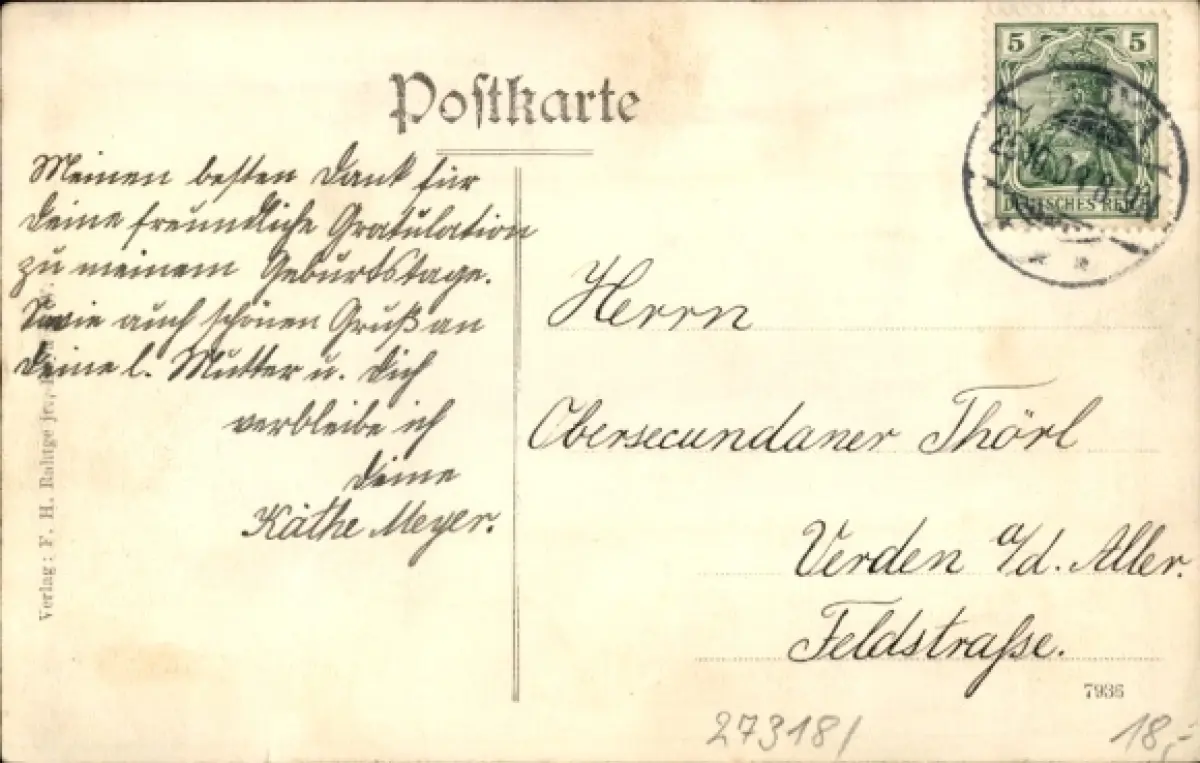 Postkarte
5 5
DEUTSCHES REICH
Meinen besten Dank für
Deine freundliche Gratulation
zu meinem Geburtstage.
Sowie auch schönen Gruß an
Deine l. Mutter u. Dich
verbleibe ich
Deine
Käthe Meyer.
Herrn
Obersecundaner Thörl
Verden a/d. Aller.
Feldstraße.
7936
27318/
18,-
Verlag: F. H.